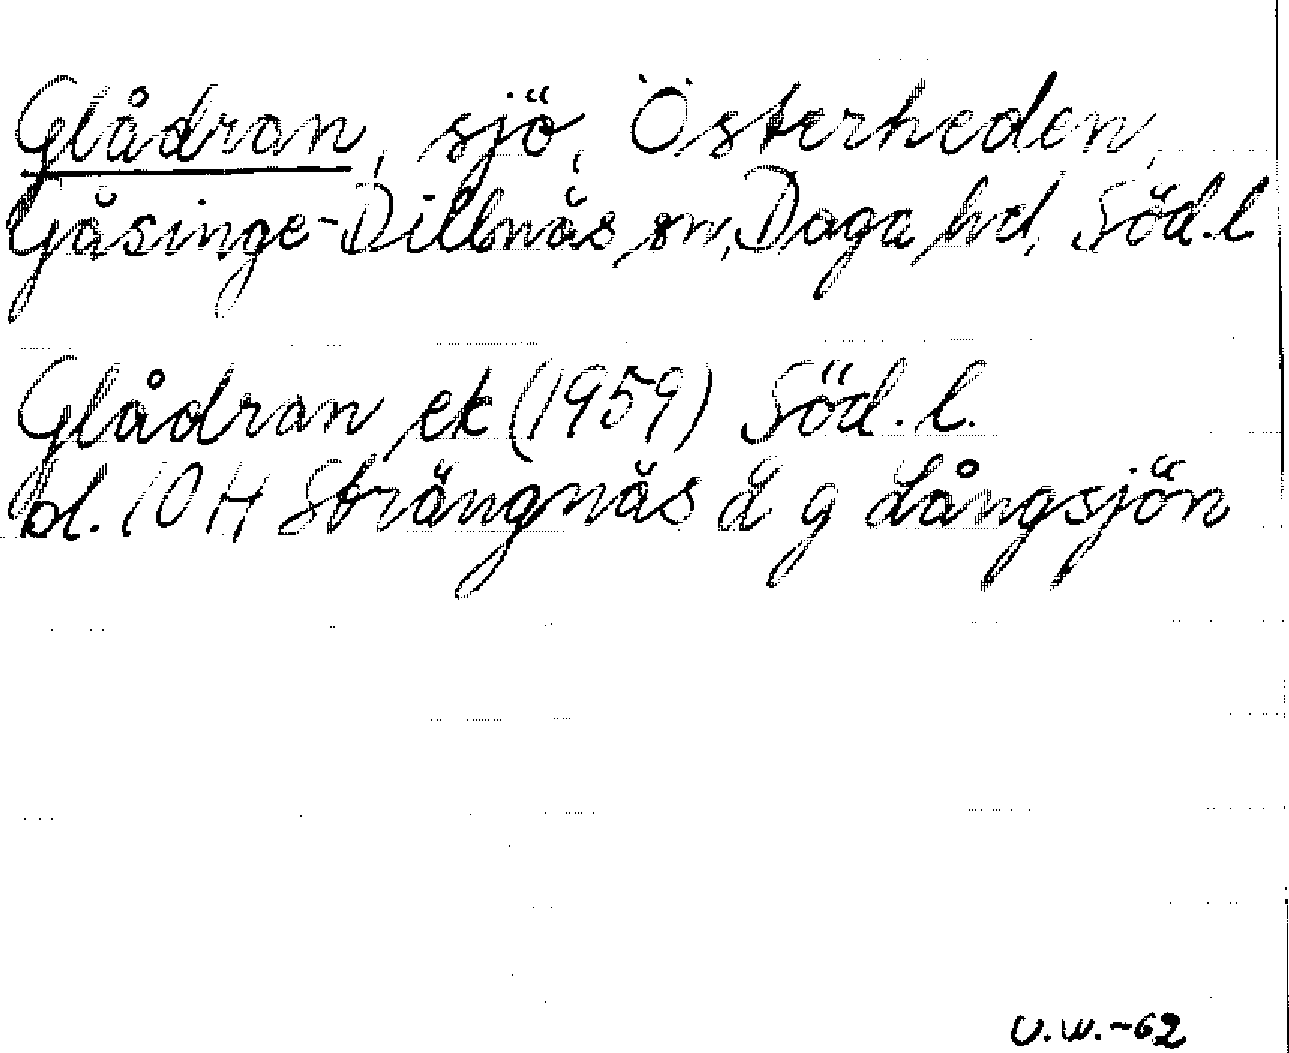 Glådran, sjö, Österheden,
Gåsinge-Dillnäs sn, Daga hd, Söd.l
Glådran ek (1959) Söd.l.
bl. 10 H Strängnäs d g Långsjön
U.W.-62